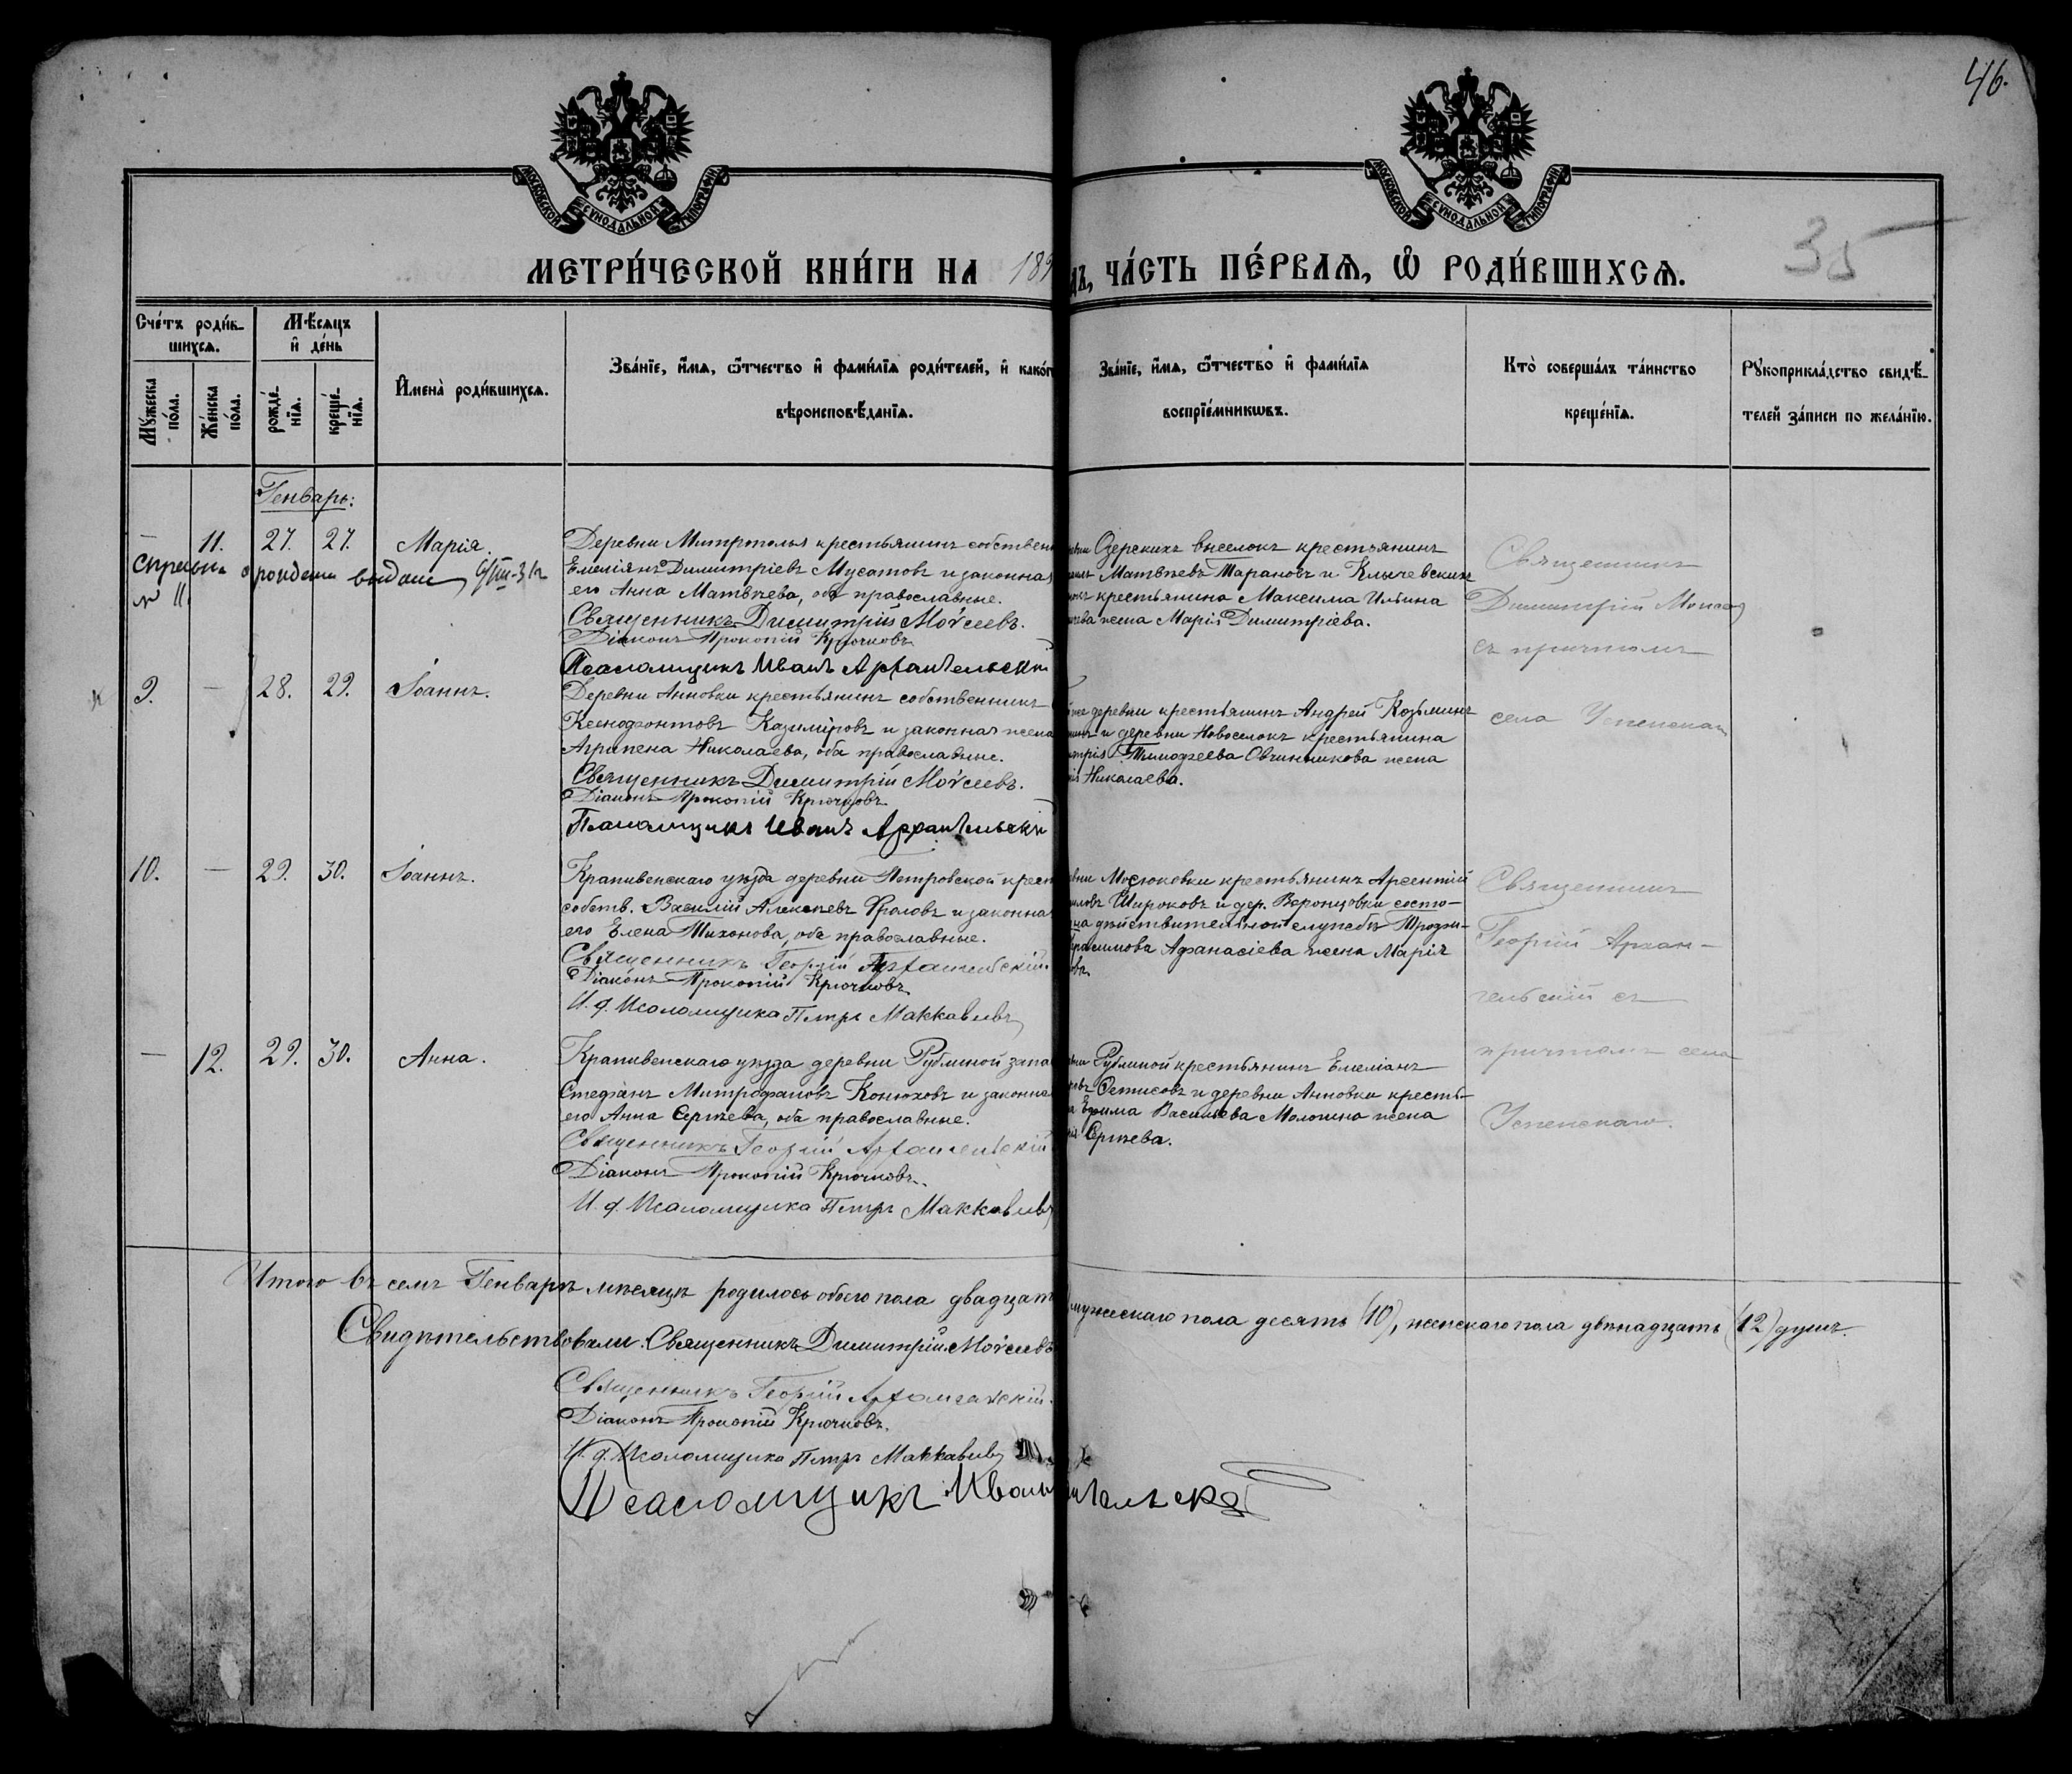 46.
35
МОСКОВСКОЙ СѴНОДАЛЬНОЙ ТИПОГРАФІИ
МОСКОВСКОЙ СѴНОДАЛЬНОЙ ТИПОГРАФІИ
МЕТРИ́ЧЕСКОЙ КНИ́ГИ НА 189
ДЪ, ЧА́СТЬ ПЕ́РВАѦ, Ѡ҆ РОДИ́ВШИХСѦ.
Сче́тъ роди́в-
шихсѧ.
Мꙋ́жеска
по́ла.
Же́нска
по́ла.
Мѣ́сѧцъ
и҆ де́нь
рожде́-
нїѧ.
креще́-
нїѧ.
И҆мена̀ роди́вшихсѧ.
Зва́нїе, и҆́мѧ, ѻ҆́тчество и҆ фами́лїѧ роди́телей, и҆ како́г
вѣроисповѣ́данїѧ.
Зва́нїе, и҆́мѧ, ѻ҆́тчество и҆ фами́лїѧ
воспрїе́мникѡвъ.
Кто̀ соверша́лъ та́инство
креще́нїѧ.
Рꙋкоприкла́дство свидѣ́-
телей за́писи по жела́нїю.
Генварь:
— 11. 27. 27. Марія.
Деревни Митрополья крестьянинъ собствен
Емеліянъ Димитріевъ Мусатовъ и законная
его Анна Матвѣева, оба православные.
Священникъ Димитрій Моѵсеевъ.
Діаконъ Прокопій Крючковъ
Псаломщикъ Иванъ Архангельскій
Озерскихъ выселокъ крестьянинъ
Матвѣевъ Тарановъ и Клычевскихъ
крестьянина Максима Ильина
жена Марія Димитріева.
Священникъ
Димитрій Моисеевъ
съ причтомъ
села Успенскаго
о рожденіи выдана
№ 11.
9. — 28. 29. Іоаннъ.
Деревни Анновки крестьянинъ собственникъ
Ксенофонтовъ Казиміровъ и законная жена
Агрипена Николаева, оба православные.
Священникъ Димитрій Моѵсеевъ.
Діаконъ Прокопій Крючковъ
Псаломщикъ Иванъ Архангельскій
деревни крестьянинъ Андрей Козьминъ
и деревни Новоселокъ крестьянина
Тимофеева Овчинникова жена
Николаева.
10. — 29. 30. Іоаннъ.
Крапивенскаго уѣзда деревни Петровской крест
собств. Василій Алексѣевъ Фроловъ и законная
его Елена Тихонова, оба православные.
Священникъ Георгій Архангельскій
Діаконъ Прокопій Крючковъ
И. д. Псаломщика Петръ Маккавѣевъ
Мосюковки крестьянинъ Арсентій
Широковъ и дер. Воронцовки состо-
на дѣйствительной службѣ Трофи-
Герасимова Афанасіева жена Марія
Священникъ
Георгій Архан-
гельскій съ
причтомъ села
Успенскаго.
— 12. 29. 30. Анна.
Крапивенскаго уѣзда деревни Рублиной запа
Стефанъ Митрофановъ Конюховъ и законная
его Анна Сергѣева, оба православные.
Священникъ Георгій Архангельскій
Діаконъ Прокопій Крючковъ.
И. д. Псаломщика Петръ Маккавѣевъ
Рублиной крестьянинъ Емеліанъ
Фетисовъ и деревни Анновки кресть-
Ефима Васильева Молокина жена
Сергѣева.
Итого въ семъ Генварѣ мѣсяцѣ родилось обоего пола двадцат
мужескаго пола десять (10), женскаго пола двѣнадцать (12) душъ.
Свидѣтельствовали: Священникъ Димитрій Моѵсеевъ
Священникъ Георгій Архангельскій.
Діаконъ Прокопій Крючковъ.
И. д. Псаломщика Петръ Маккавѣевъ
Псаломщикъ Иванъ гельскій